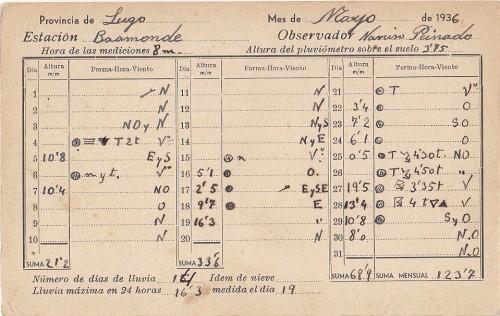 Provincia de Lugo Mes de Mayo de 1936
Estación Baamonde Observador Peinado
Hora de las mediciones 8 m. Altura del pluviómetro sobre el suelo 3'75
Día Altura m/m Forma-Hora-Viento Día Altura m/m Forma-Hora-Viento Día Altura m/m Forma-Hora-Viento
1 N
2 N
3 NO y N
4 T 2 t V"
5 10'8 E y S
6 m y t. V"
7 10'4 NO
8 O
9 N
10 N
SUMA 21'2
11 N
12 N
13 N y S
14 N y E
15 n V"
16 5'1 O.
17 2'5 E y SE
18 9'7 E
19 16'3 "
20 N
SUMA 33'6
21 T V"
22 3'4 O
23 7'2 SO
24 6'1 O
25 0'5 T 4'30t. NO
26 T 4'50t. N
27 19'5 3'35t V
28 13'4 4 t V
29 10'8 S y O
30 8'0 N.O
31 N.O
SUMA 68'9 SUMA MENSUAL 123'7
Número de días de lluvia Idem de nieve
Lluvia máxima en 24 horas 16'3 medida el día 19